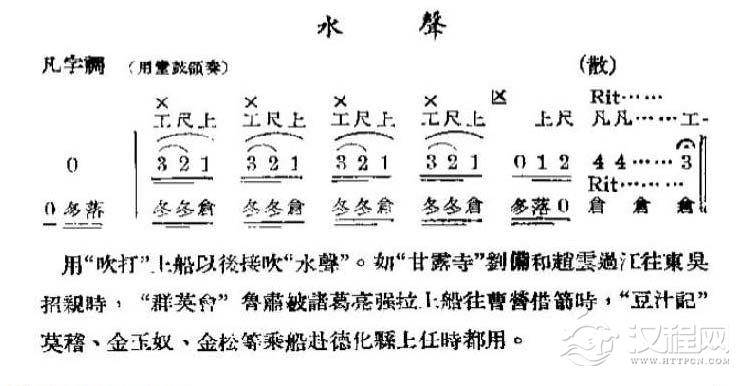 水 聲
凡字調 (用堂鼓領奏) (散)
× × × × ☒ Rit……
工尺上 工尺上 工尺上 工尺上 上尺 凡凡……工-
0 321 321 321 321 012 44……3
Rit……
0 多落 冬冬倉 冬冬倉 冬冬倉 冬冬倉 多落0 倉 倉 倉
用“吹打”上船以後接吹“水聲”。如“甘露寺”劉備和趙雲過江往東吳
招親時，“群英會”魯肅被諸葛亮强拉上船往曹營借箭時，“豆汁記”
莫稽、金玉奴、金松等乘船赴德化縣上任時都用。
汉程网
WWW.HTTPCN.COM